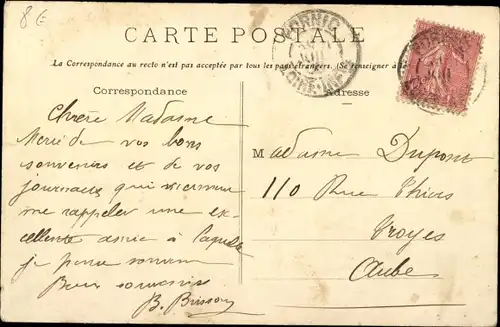 8€
CARTE POSTALE
PORNIC
La Correspondance au recto n'est pas acceptée par tous les pays étrangers. (Se renseigner à la
Correspondance
Adresse
Chère Madame
Merci de vos bons
souvenirs et de vos
journaux qui viennent
me rappeler une ex-
cellente amie à laquelle
je pense souvent
Bons souvenirs
B. Brisson
Madame Dupont
110 Rue Thiers
Troyes
Aube